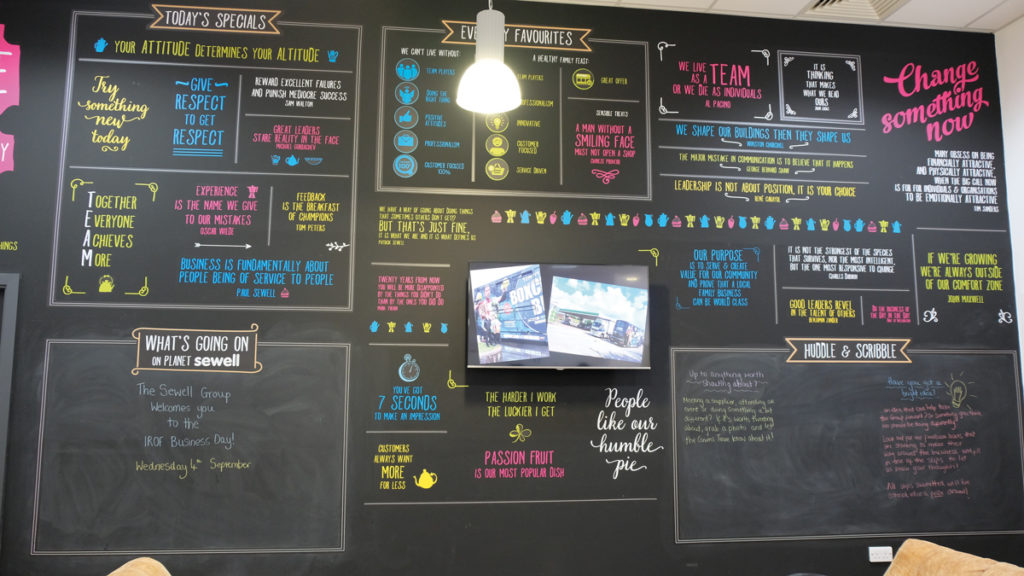 TODAY'S SPECIALS
YOUR ATTITUDE DETERMINES YOUR ALTITUDE
Try
something
new
today
GIVE
RESPECT
TO GET
RESPECT
REWARD EXCELLENT FAILURES
AND PUNISH MEDIOCRE SUCCESS
SAM WALTON
GREAT LEADERS
STARE REALITY IN THE FACE
MICHAEL GORBACHEV
TOGETHER
EVERYONE
ACHIEVES
MORE
EXPERIENCE
IS THE NAME WE GIVE
TO OUR MISTAKES
OSCAR WILDE
FEEDBACK
IS THE BREAKFAST
OF CHAMPIONS
TOM PETERS
BUSINESS IS FUNDAMENTALLY ABOUT
PEOPLE BEING OF SERVICE TO PEOPLE
PAUL SEWELL
WHAT'S GOING ON
ON PLANET sewell
The Sewell Group
Welcomes you
to the
IROF Business Day!
Wednesday 4th September
FAVOURITES
WE CAN'T LIVE WITHOUT:
TEAM PLAYERS
DOING THE
RIGHT THING
POSITIVE
ATTITUDES
PROFESSIONALISM
CUSTOMER FOCUSED
100%
A HEALTHY FAMILY FEAST:
TEAM PLAYERS
PROFESSIONALISM
INNOVATIVE
CUSTOMER
FOCUSED
SERVICE DRIVEN
GREAT OFFER
SENSIBLE TREATS:
A MAN WITHOUT A
SMILING FACE
MUST NOT OPEN A
SHOP
CHINESE PROVERB
WE HAVE A WAY OF GOING ABOUT DOING THINGS
THAT SOMETIMES OTHERS DON'T GET!!
BUT THAT'S JUST FINE,
IT IS WHAT WE ARE AND IT IS WHAT DEFINES US
PATRICK SEWELL
TWENTY YEARS FROM NOW
YOU WILL BE MORE DISAPPOINTED
BY THE THINGS YOU DIDN'T DO
THAN BY THE ONES YOU DID DO
MARK TWAIN
YOU'VE GOT
7 SECONDS
TO MAKE AN IMPRESSION
CUSTOMERS
ALWAYS WANT
MORE
FOR LESS
THE HARDER I WORK
THE LUCKIER I GET
PASSION FRUIT
IS OUR MOST POPULAR DISH
People
like our
humble
pie
WE LIVE
AS A TEAM
OR WE DIE AS INDIVIDUALS
AL PACINO
IT IS
THINKING
THAT MAKES
WHAT WE READ
OURS
JOHN LOCKE
Change
something
now
WE SHAPE OUR BUILDINGS THEN THEY SHAPE US
WINSTON CHURCHILL
THE MAJOR MISTAKE IN COMMUNICATION IS TO BELIEVE THAT IT HAPPENS
GEORGE BERNARD SHAW
LEADERSHIP IS NOT ABOUT POSITION, IT IS YOUR CHOICE
RENÉ CARAYOL
MANY OBSESS ON BEING
FINANCIALLY ATTRACTIVE,
AND PHYSICALLY ATTRACTIVE,
WHEN THE BIG CALL NOW
IS FOR INDIVIDUALS & ORGANISATIONS
TO BE EMOTIONALLY ATTRACTIVE
TIM SANDERS
OUR PURPOSE
IS TO SERVE & CREATE
VALUE FOR OUR COMMUNITY
AND PROVE THAT A LOCAL
FAMILY BUSINESS
CAN BE WORLD CLASS
IT IS NOT THE STRONGEST OF THE SPECIES
THAT SURVIVES, NOR THE MOST INTELLIGENT
BUT THE ONE MOST RESPONSIVE TO CHANGE
CHARLES DARWIN
GOOD LEADERS REVEL
IN THE TALENT OF OTHERS
BENJAMIN ZANDER
DO THE BUSINESS OF
THE DAY IN THE DAY
IF WE'RE GROWING
WE'RE ALWAYS OUTSIDE
OF OUR COMFORT ZONE
JOHN MAXWELL
HUDDLE & SCRIBBLE
Up to anything worth
shouting about?
Have you got a
bright idea?